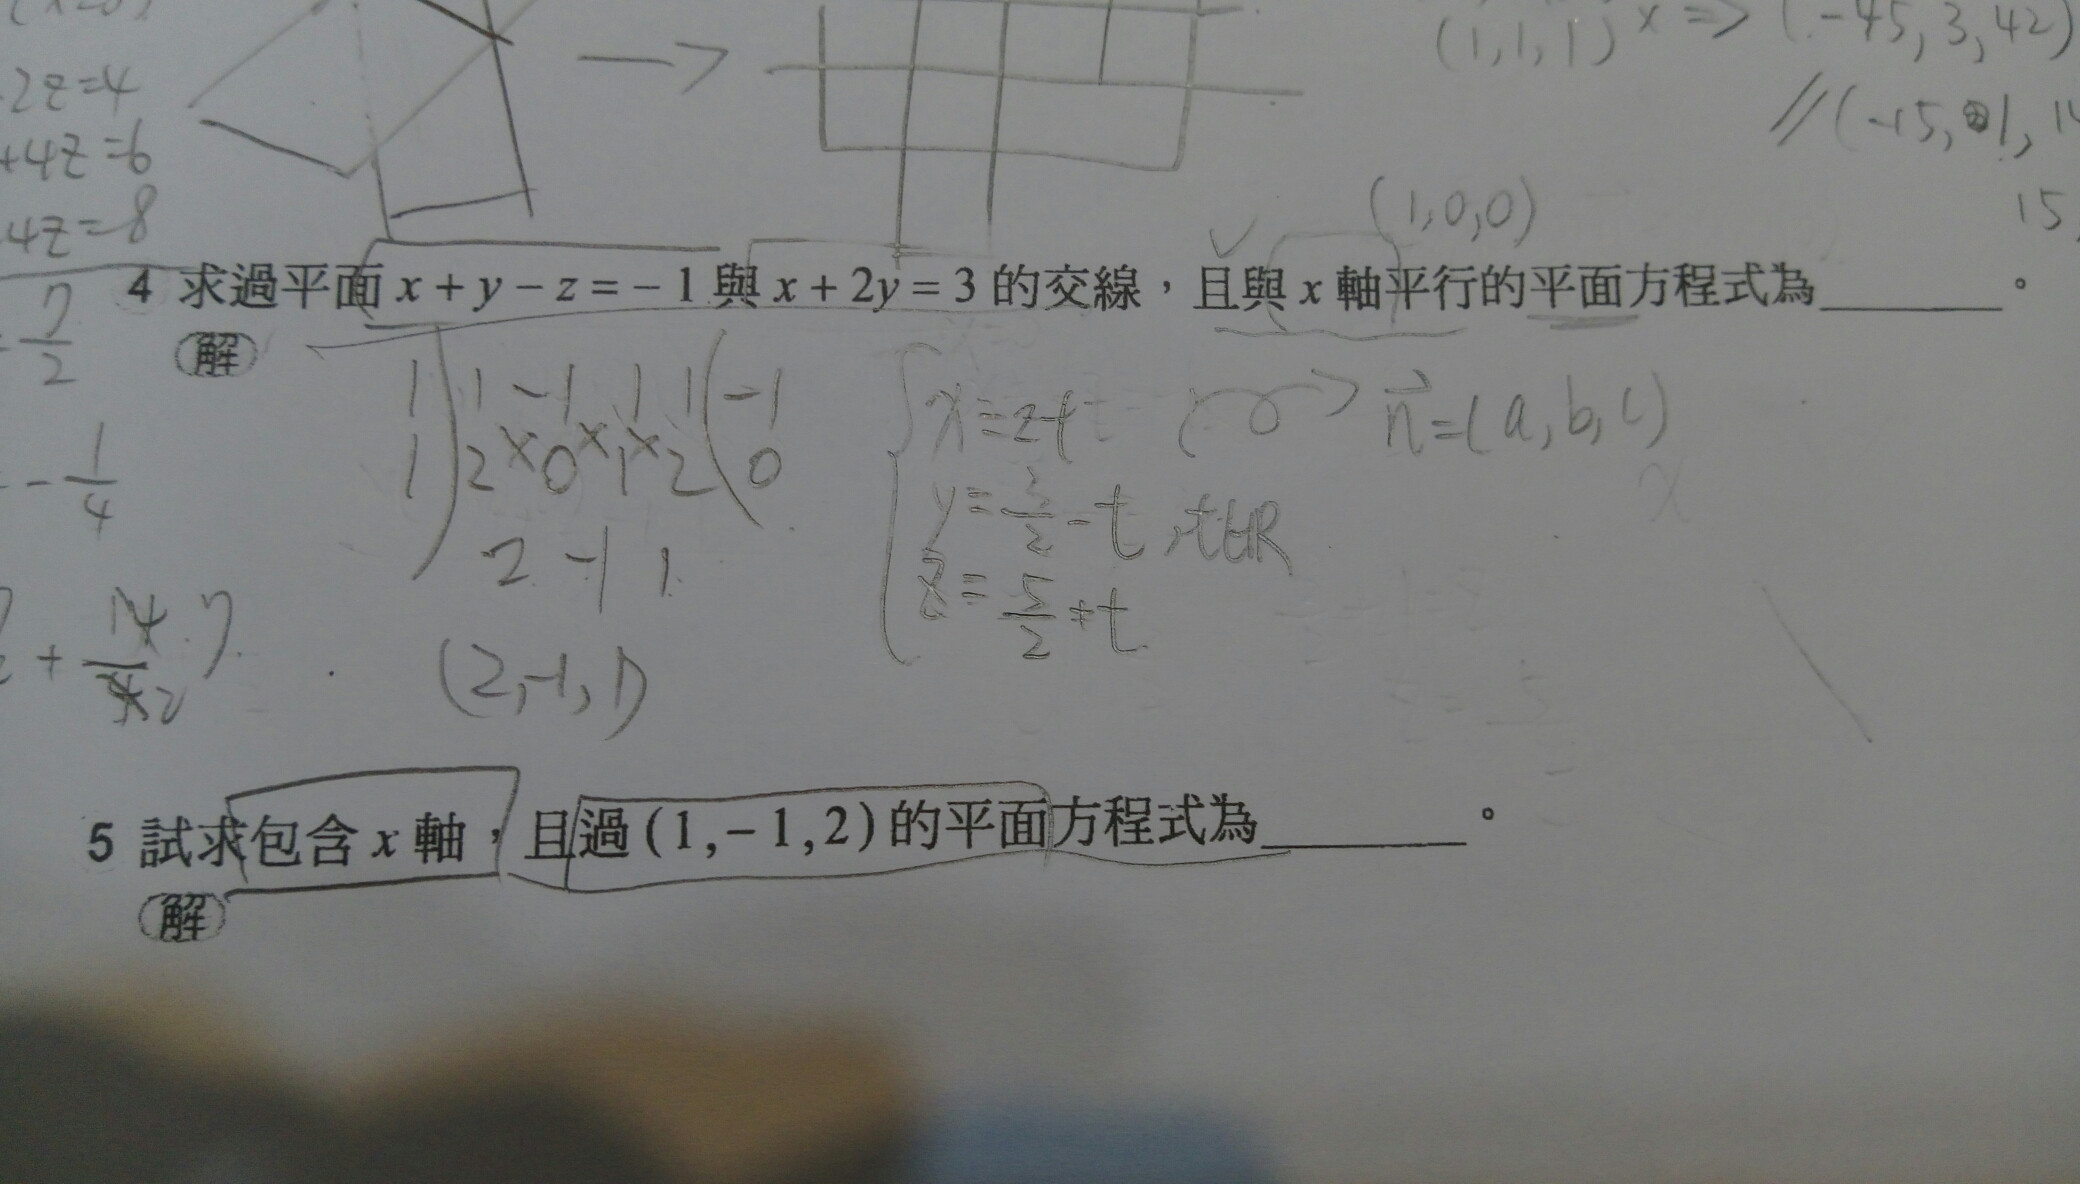 (1,1,1) x => (-45,3,42)
2z=4
//(-15,1,14
+4z=6
(1,0,0)
15,
4z=8
4 求過平面 x+y-z=-1 與 x+2y=3 的交線，且與 x 軸平行的平面方程式為______。
7/2
解
1) 1 -1 1 1 (-1
1) 2 0 1 2 (0
2 -1 1
x=2t
y=3/2-t, t∈R
z=5/2+t
n=(a,b,c)
-1/4
(2,-1,1)
5 試求包含 x 軸，且過(1,-1,2)的平面方程式為______。
解